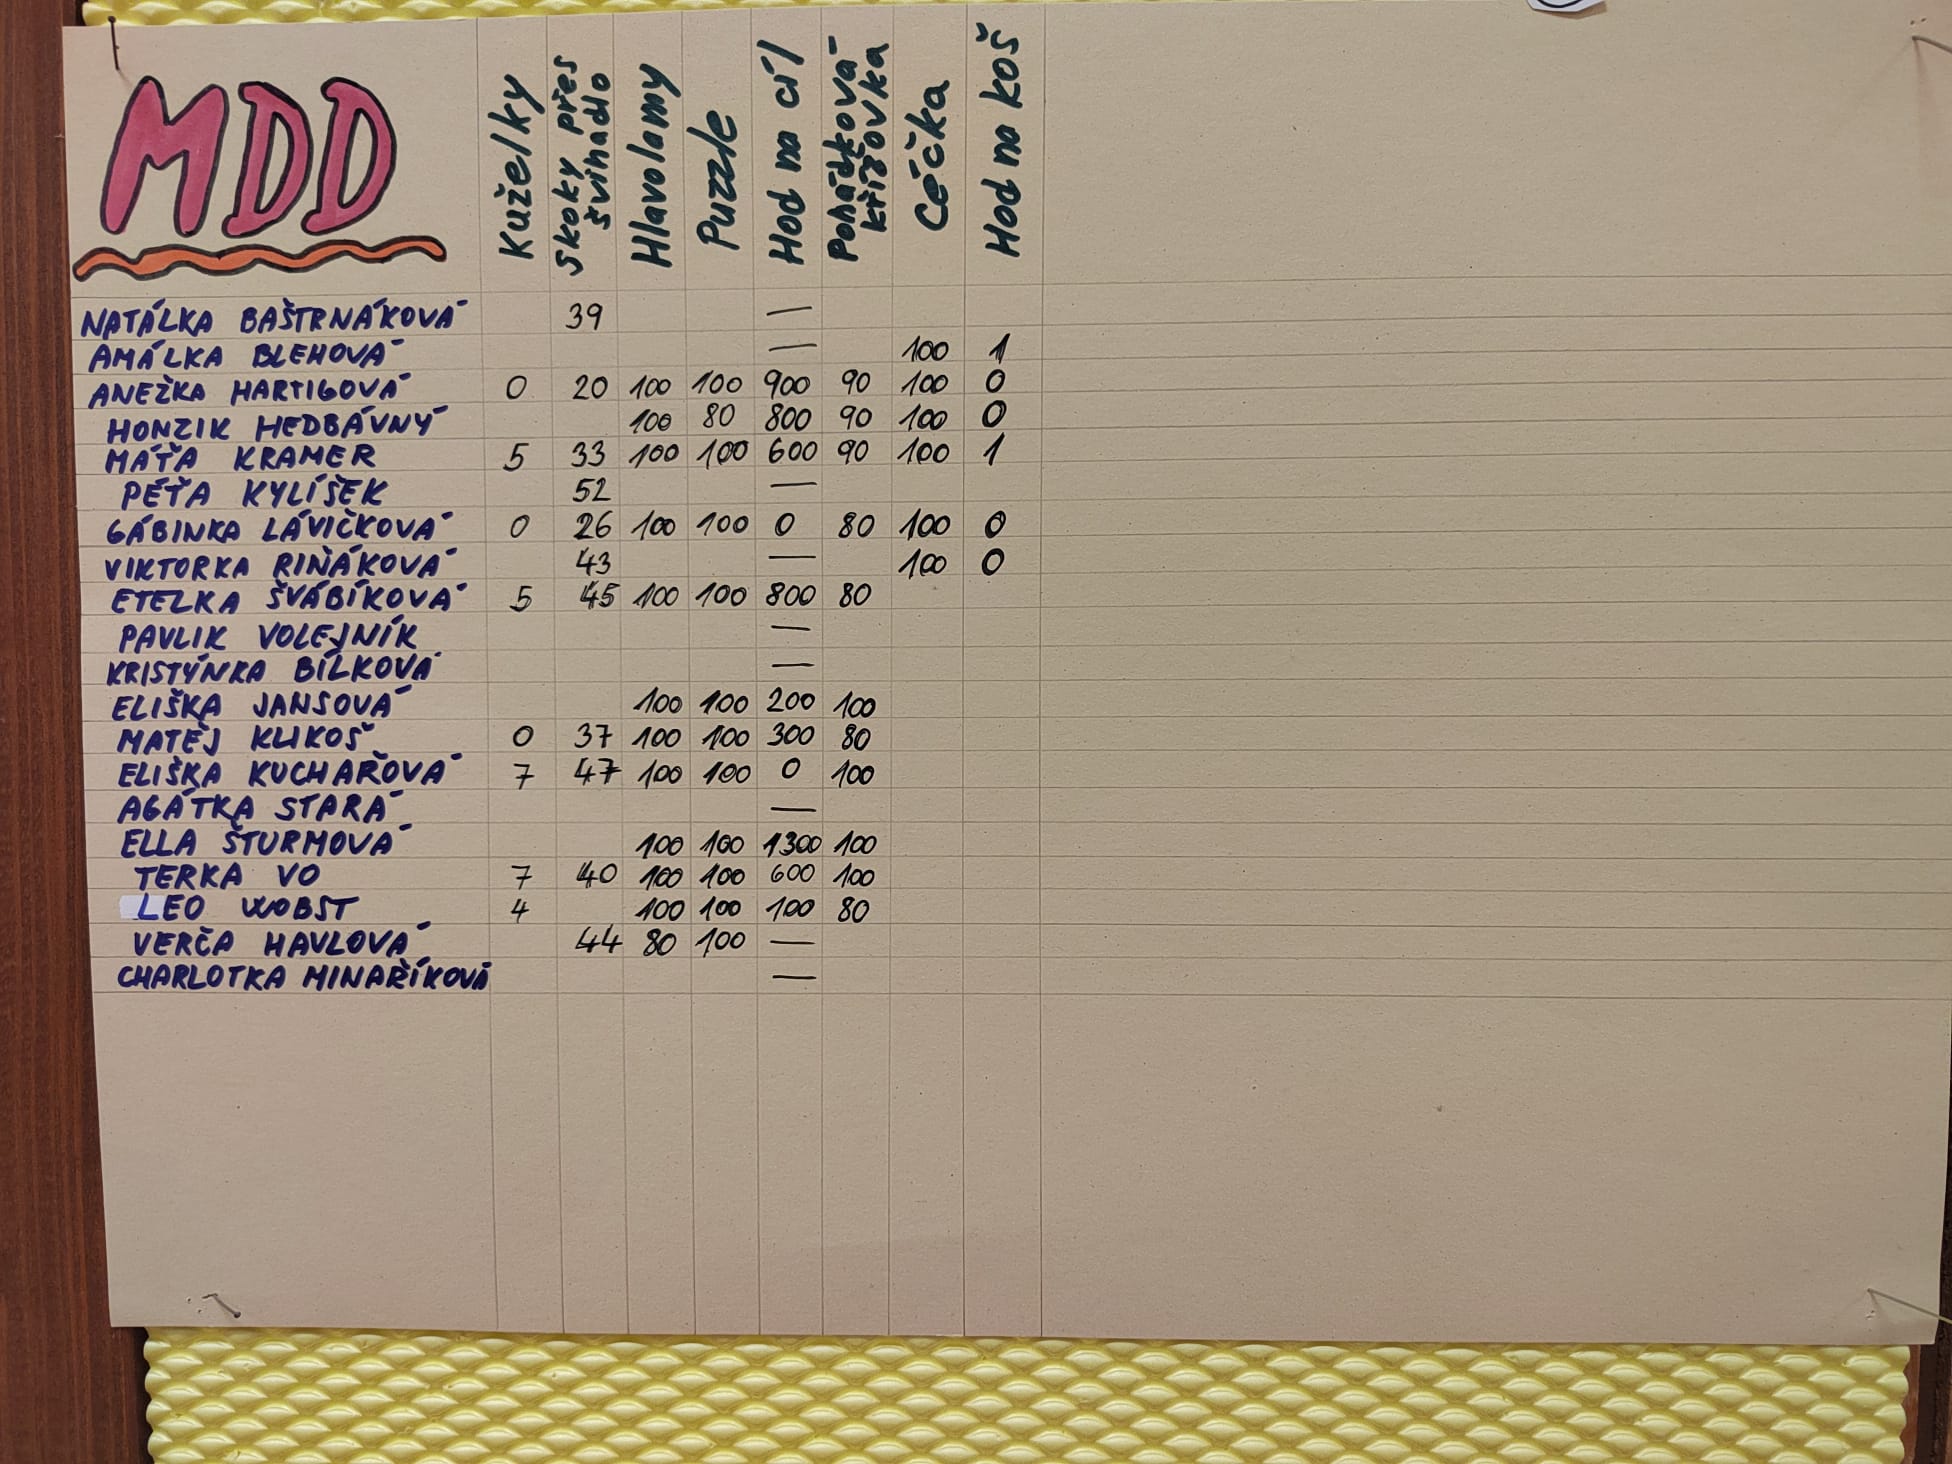 MDD
Kuželky
Skoky přes švihadlo
Hlavolamy
Puzzle
Hod na cíl
Pohádková křížovka
Céčka
Hod na koš
NATÁLKA BAŠTRNÁKOVÁ 39 —
AMÁLKA BLEHOVÁ — 100 1
ANEŽKA HARTIGOVÁ 0 20 100 100 900 90 100 0
HONZIK HEDBÁVNÝ 100 80 800 90 100 0
MÁŤA KRAMER 5 33 100 100 600 90 100 1
PÉŤA KYLÍŠEK 52 —
GÁBINKA LÁVIČKOVÁ 0 26 100 100 0 80 100 0
VIKTORKA RIŇÁKOVÁ 43 — 100 0
ETELKA ŠVÁBÍKOVÁ 5 45 100 100 800 80
PAVLIK VOLEJNÍK —
KRISTÝNKA BÍLKOVÁ —
ELIŠKA JANSOVÁ 100 100 200 100
MATĚJ KLIKOŠ 0 37 100 100 300 80
ELIŠKA KUCHAŘOVÁ 7 47 100 100 0 100
AGÁTKA STARÁ —
ELLA ŠTURMOVÁ 100 100 1300 100
TERKA VO 7 40 100 100 600 100
LEO WOBST 4 100 100 100 80
VERČA HAVLOVÁ 44 80 100 —
CHARLOTKA MINAŘÍKOVÁ —